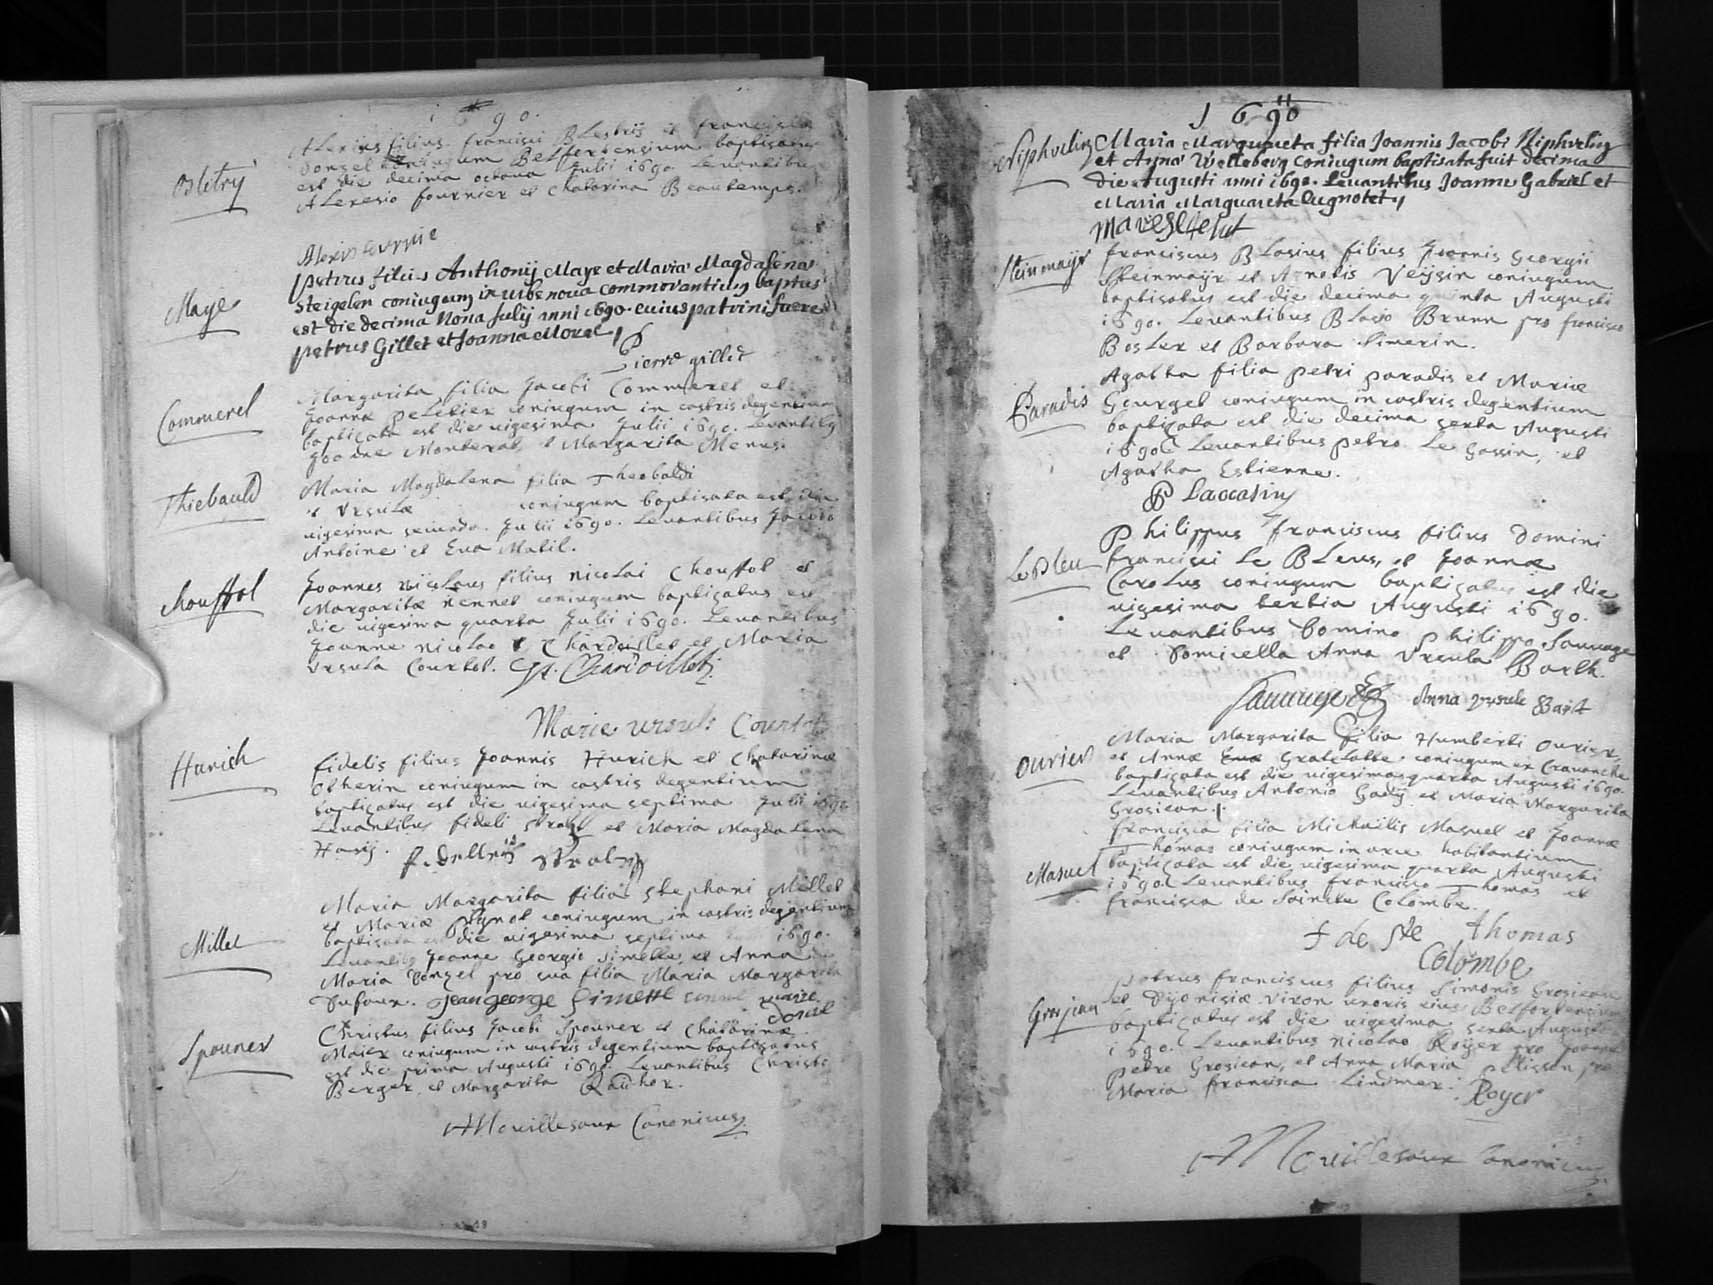 1690.
Alexius filius francisci BLestrij et francisca
Donzel coniugum Belfortensium baptizatus
est die decima octava Julii 1690 Levantibus
Alexsio fournier et Chatarina Beautemps.
Maye
petrus filius Anthonij Maye et Maria Magdalena
Steigelen coniugum in urbe noua commorantium baptus
est die decima Nona Julij anni 1690. cuius patrini fuere
petrus Gillet et Joanna Morel
Pierre gillet
Commerel
Margarita filia Jacobi Commerel et
Joannæ peletier coniugum in castris degentium
baptizata est die vigesima Julii 1690. Levantibq
Joanne Monterat, et Margarita Menus.
Thiebauld
Maria Magdalena filia Theobaldi
et Vrsulæ coniugum baptisata est die
vigesima secunda Julii 1690. Levantibus Jacobo
Antoine et Eua Matil.
Chouffol
Joannes nicolaus filius nicolai Chouffol et
Margaritæ Hennet coniugum baptizatus est
die vigesima quarta Julii 1690. Levantibus
Joanne nicolao Chardoillet et Maria
Vrsula Courtot. Chardoillet
Marie ursule Courtot
Hurich
fidelis filius Joannis Hurich et Chatarinæ
Otherin coniugum in castris degentium
baptizatus est die vigesima septima Julii 1690
Levantibus fideli Strabl et Maria Magdalena
Harij.
Millet
Maria Margarita filia Stephani Millet
et Mariæ Pignot coniugum in castris degentium
baptizata est die vigesima septima 1690.
Levantibq Joanne Georgio Simette, et Anna
Maria Donzel pro sua filia Maria Margarita
Dufaux. Jean george Simette
Spouner
Christus filius Jacobi Spouner et Chatarinæ
Maier coniugum in castris degentium baptizatus
est die prima Augusti 1690. Levantibus Christo
Berger et Margarita
AMouillesaux Canonicus
1690
Niphveling
Maria Marguareta filia Joannis Jacobi Niphveling
et Anna Welleberg Coniugum baptisata fuit decima
die Augusti anni 1690. Levantibus Joanne Gabriel et
Maria Marguareta Cugnotet
Steinmayr
franciscus BLasius filius Joannis Georgii
Steinmayr et Agnetis Veijsin coniugum
baptisatus est die decima quinta Augusti
1690. Levantibus BLasio Brunn pro francisco
Bosler et Barbara Simerin.
Paradis
Agatha filia petri paradis et Mariæ
Gourget coniugum in castris degentium
baptizata est die decima sexta Augusti
1690. Levantibus petro Le Gassin, et
Agatha Estienne.
P Laccasin
Le Bleu
Philippus franciscus filius Domini
francisci Le BLeus, et Joannæ
Carolus coniugum baptizatus est die
uigesima tertia Augusti 1690.
Levantibus Domino Philippo Sauuage
et Domicella Anna Vrsula Barth.
Sauuage Anna Vrsule Bart
Ourier
Maria Margarita filia Humberti Ourier,
et Annæ Eua Gratelatte coniugum ex Crauanche
baptizata est die uigesimaquarta Augusti 1690.
Levantibus Antonio Gady et Maria Margarita
Grosiean.
Masuel
francisca filia Michaelis Masuel et Joannæ
Thomas coniugum in arce habitantium
baptizata est die uigesima quarta Augusti
1690. Levantibus francisco Thomas et
francisca de Saincte Colombe.
f de Ste Thomas
Colombe
Grosjean
petrus franciscus filius Simonis Grosiean
et Dyonisiæ viron uxoris eius Belfortensium
baptizatus est die uigesima sexta Augusti
1690. Levantibus nicolao Royer pro Joanne
petro Grosiean, et Anna Maria pelisson pro
Maria francisca Lindmer.
Royer
AMouillesaux Canonicus